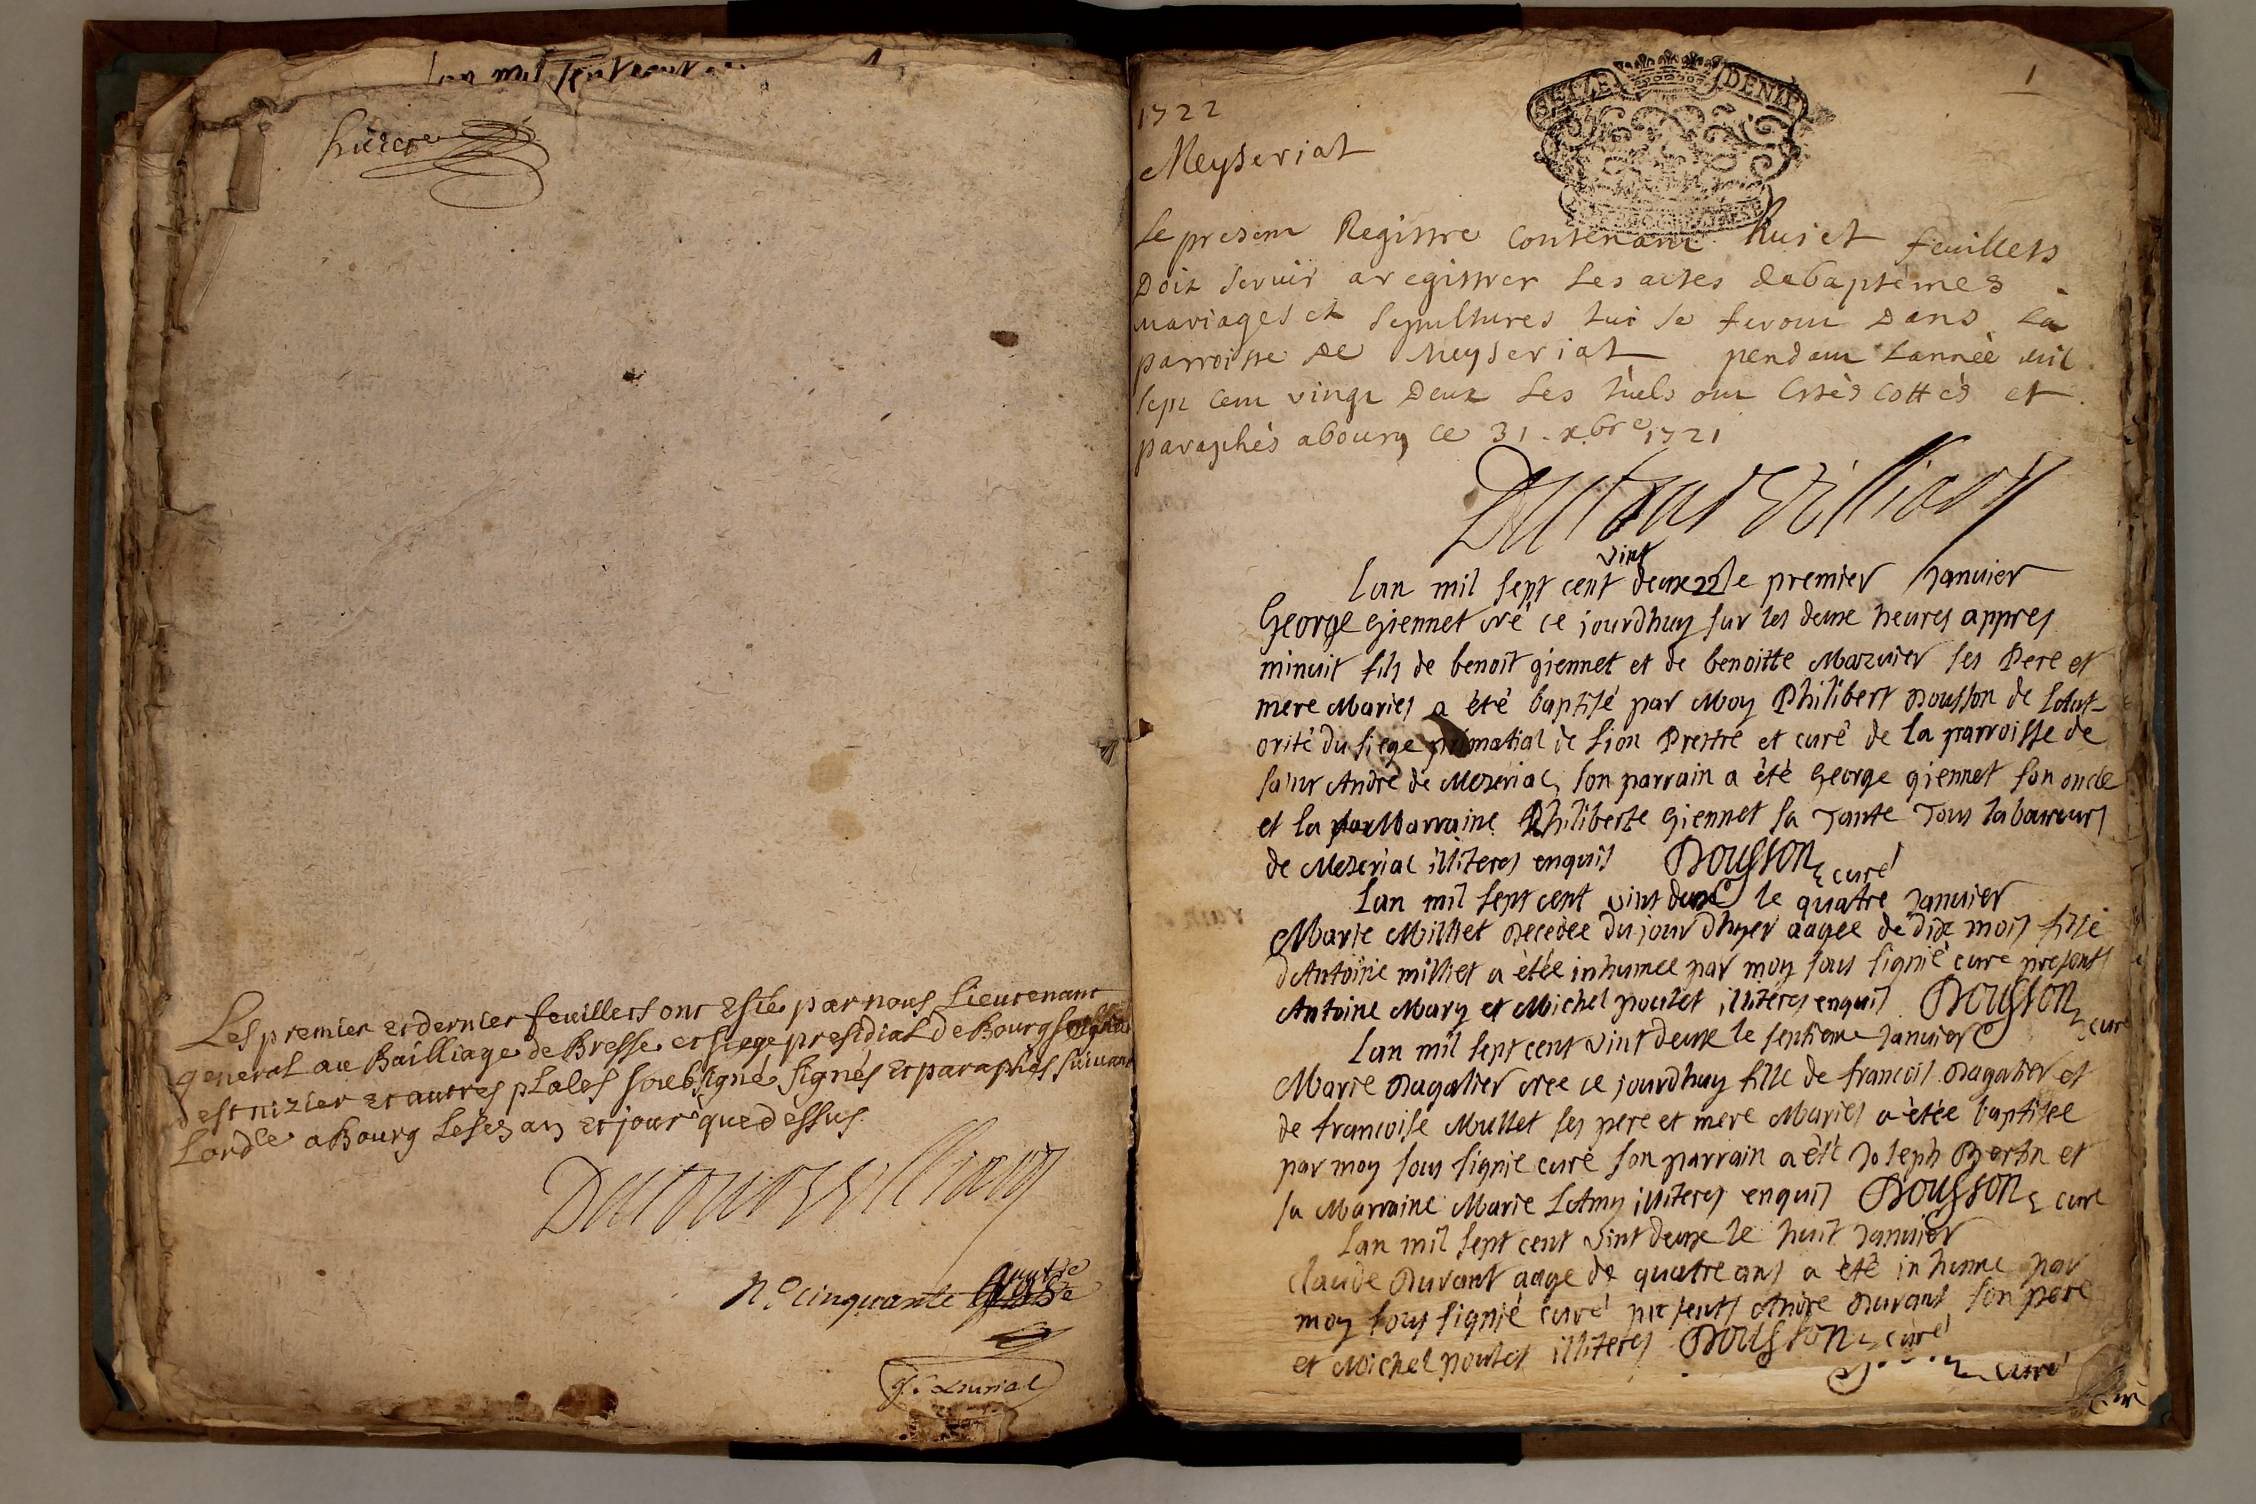 Lan mil sept cent
huict
Les premier et dernier feuillets ont esté par nous Lieutenant
general au Bailliage de Bresse et siege presidial de Bourg seigneur
de st nizier et autres places soubsigné signés et paraphés suivant
Lordce a Bourg les es an et jour que dessus
N.o cinquante quatre
1
SEIZE DENIE
1722
Meyseriat
Le present Registre contenant huict feuillets
Doit servir a registrer Les actes de baptemes
mariages et sepultures qui se feront Dans La
parroisse De Meyseriat pendant Lannée mil
sept cent vingt Deux Les quels ont estés cottés et
paraphés a bourg ce 31. xbre 1721
vint
Lan mil sept cent deux 22 le premier Janvier
George Giennet né ce jourdhuy sur les deux heures appres
minuit fils de benoit giennet et de benoitte Mazuier ses Pere et
mere Mariés a été baptisé par Moy Philibert Dousson de Lotut-
orité du siege primatial de Lion Prestre et curé de la parroisse de
saint André de Mezeriac, son parrain a été George giennet son oncle
et la Marraine Philiberte Giennet sa Tante Tous laboureurs
de Mezeriac illiteres enquis Dousson curé
Lan mil sept cent vint deux le quatre Janvier
Marie Milliet decedée du jour dhyer aagée de dix mois fille
dAntoine milliet a étée inhumée par moy sous signié curé presents
Antoine Mary et Michel poulet illiteres enquis Dousson curé
Lan mil sept cent vint deux le septieme Janvier
Marie Dagalier née ce jourdhuy fille de francois Dagalier et
de francoise Mullet ses pere et mere Mariés a étée baptisée
par moy sous signié curé son parrain a été Joseph Bertin et
sa Marraine Marie LAmy illiteres enquis Dousson curé
Lan mil sept cent vint deux le huit Janvier
Claude Durant aagé de quatre ans a été inhumé par
moy sous signié curé presents Andre Durant son pere
et Michel poulet illiteres Dousson curé
curé